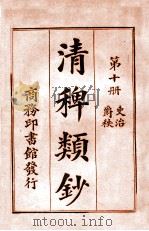 第十册
吏治
爵秩
清稗類鈔
商務印書館發行
mtoou.info